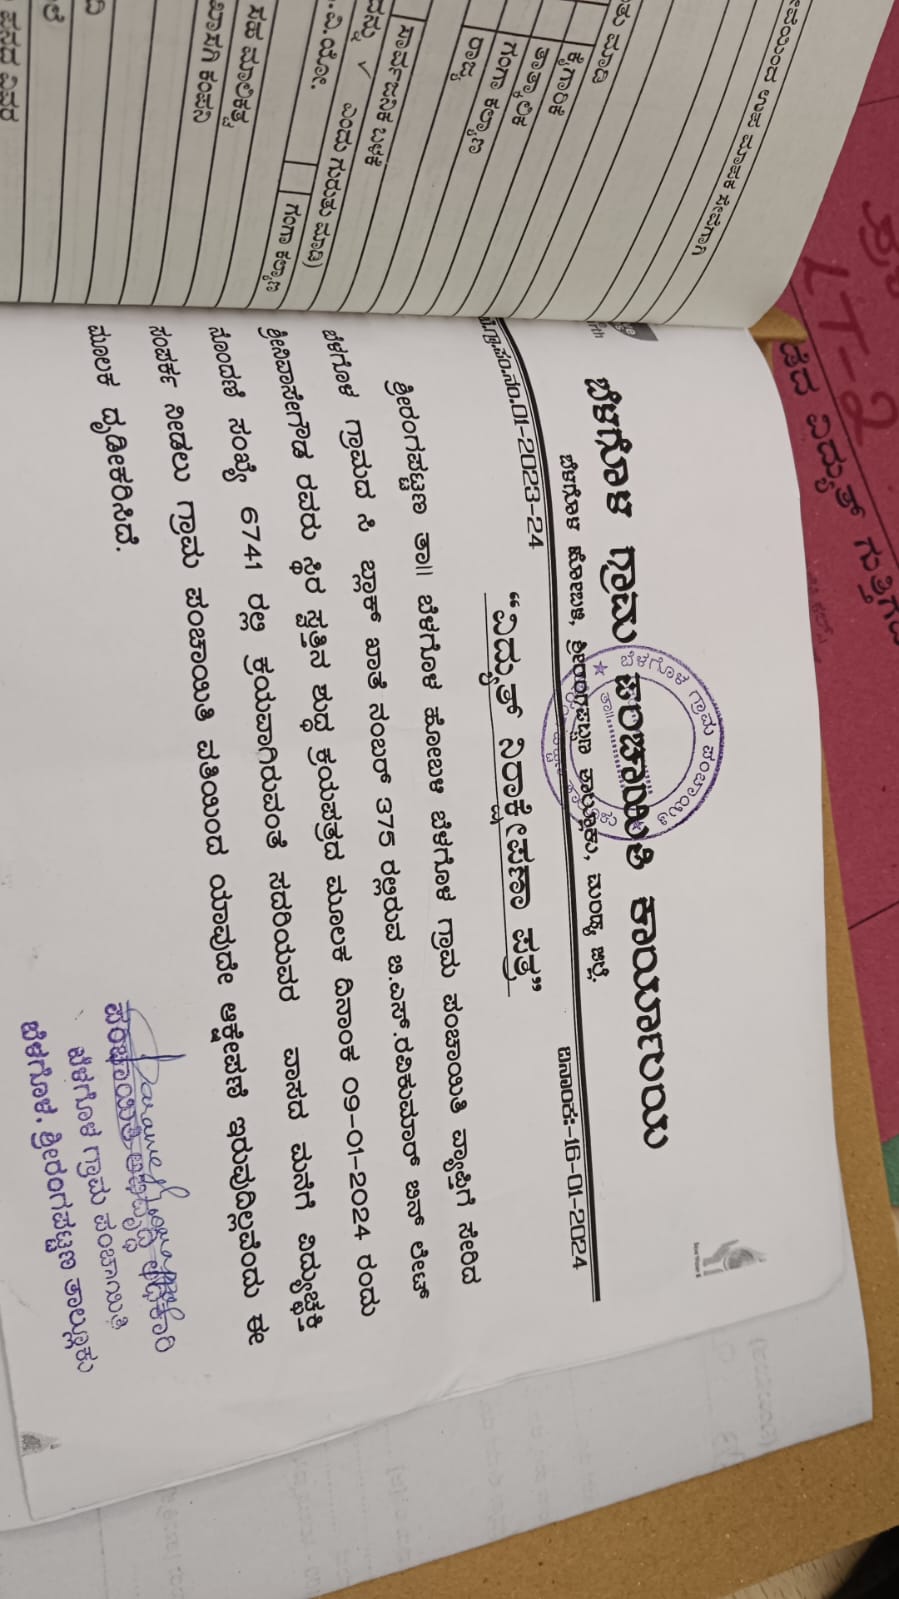 ಬೆಳಗೊಳ ಗ್ರಾಮ ಪಂಚಾಯಿತಿ ಕಾರ್ಯಾಲಯ
ಬೆಳಗೊಳ ಹೋಬಳಿ, ಶ್ರೀರಂಗಪಟ್ಟಣ ತಾಲ್ಲೂಕು, ಮಂಡ್ಯ ಜಿಲ್ಲೆ.
ಬೆ.ಗ್ರಾ.ಪಂ.ನಂ.01-2023-24 ದಿನಾಂಕ:-16-01-2024
“ವಿದ್ಯುತ್ ನಿರಾಕ್ಷೇಪಣಾ ಪತ್ರ”
ಶ್ರೀರಂಗಪಟ್ಟಣ ತಾ|| ಬೆಳಗೊಳ ಹೋಬಳಿ ಬೆಳಗೊಳ ಗ್ರಾಮ ಪಂಚಾಯಿತಿ ವ್ಯಾಪ್ತಿಗೆ ಸೇರಿದ
ಬೆಳಗೊಳ ಗ್ರಾಮದ ಸಿ ಬ್ಲಾಕ್ ಖಾತೆ ನಂಬರ್ 375 ರಲ್ಲಿರುವ ಬಿ.ಎಸ್.ರವಿಕುಮಾರ್ ಬಿನ್ ಲೇಟ್
ಶ್ರೀನಿವಾಸೇಗೌಡ ರವರು ಸ್ಥಿರ ಸ್ವತ್ತಿನ ಶುದ್ಧ ಕ್ರಯಪತ್ರದ ಮೂಲಕ ದಿನಾಂಕ 09-01-2024 ರಂದು
ನೊಂದಣಿ ಸಂಖ್ಯೆ 6741 ರಲ್ಲಿ ಕ್ರಯವಾಗಿರುವಂತೆ ಸದರಿಯವರ ವಾಸದ ಮನೆಗೆ ವಿದ್ಯುಚ್ಛಕ್ತಿ
ಸಂಪರ್ಕ ನೀಡಲು ಗ್ರಾಮ ಪಂಚಾಯಿತಿ ವತಿಯಿಂದ ಯಾವುದೇ ಆಕ್ಷೇಪಣೆ ಇರುವುದಿಲ್ಲವೆಂದು ಈ
ಮೂಲಕ ದೃಢೀಕರಿಸಿದೆ.
ಪಂಚಾಯಿತಿ ಅಭಿವೃದ್ಧಿ ಅಧಿಕಾರಿ
ಬೆಳಗೊಳ ಗ್ರಾಮ ಪಂಚಾಯಿತಿ
ಬೆಳಗೊಳ, ಶ್ರೀರಂಗಪಟ್ಟಣ ತಾಲ್ಲೂಕು
ಬೆಳಗೊಳ ಗ್ರಾಮ ಪಂಚಾಯಿತಿ
LT-2
ವಿದ್ಯುತ್
ಕೈಗಾರಿಕೆ
ತಾತ್ಕಾಲಿಕ
ಗಂಗಾ ಕಲ್ಯಾಣ
ರಾಜ್ಯ
ಸಾರ್ವಜನಿಕ ಬಳಕೆ
ಎಂದು ಗುರುತು ಮಾಡಿ)
ಗಂಗಾ ಕಲ್ಯಾಣ
ಸಹ ಮಾಲಿಕತ್ವ
ಖಾಸಗಿ ಕಂಪನಿ